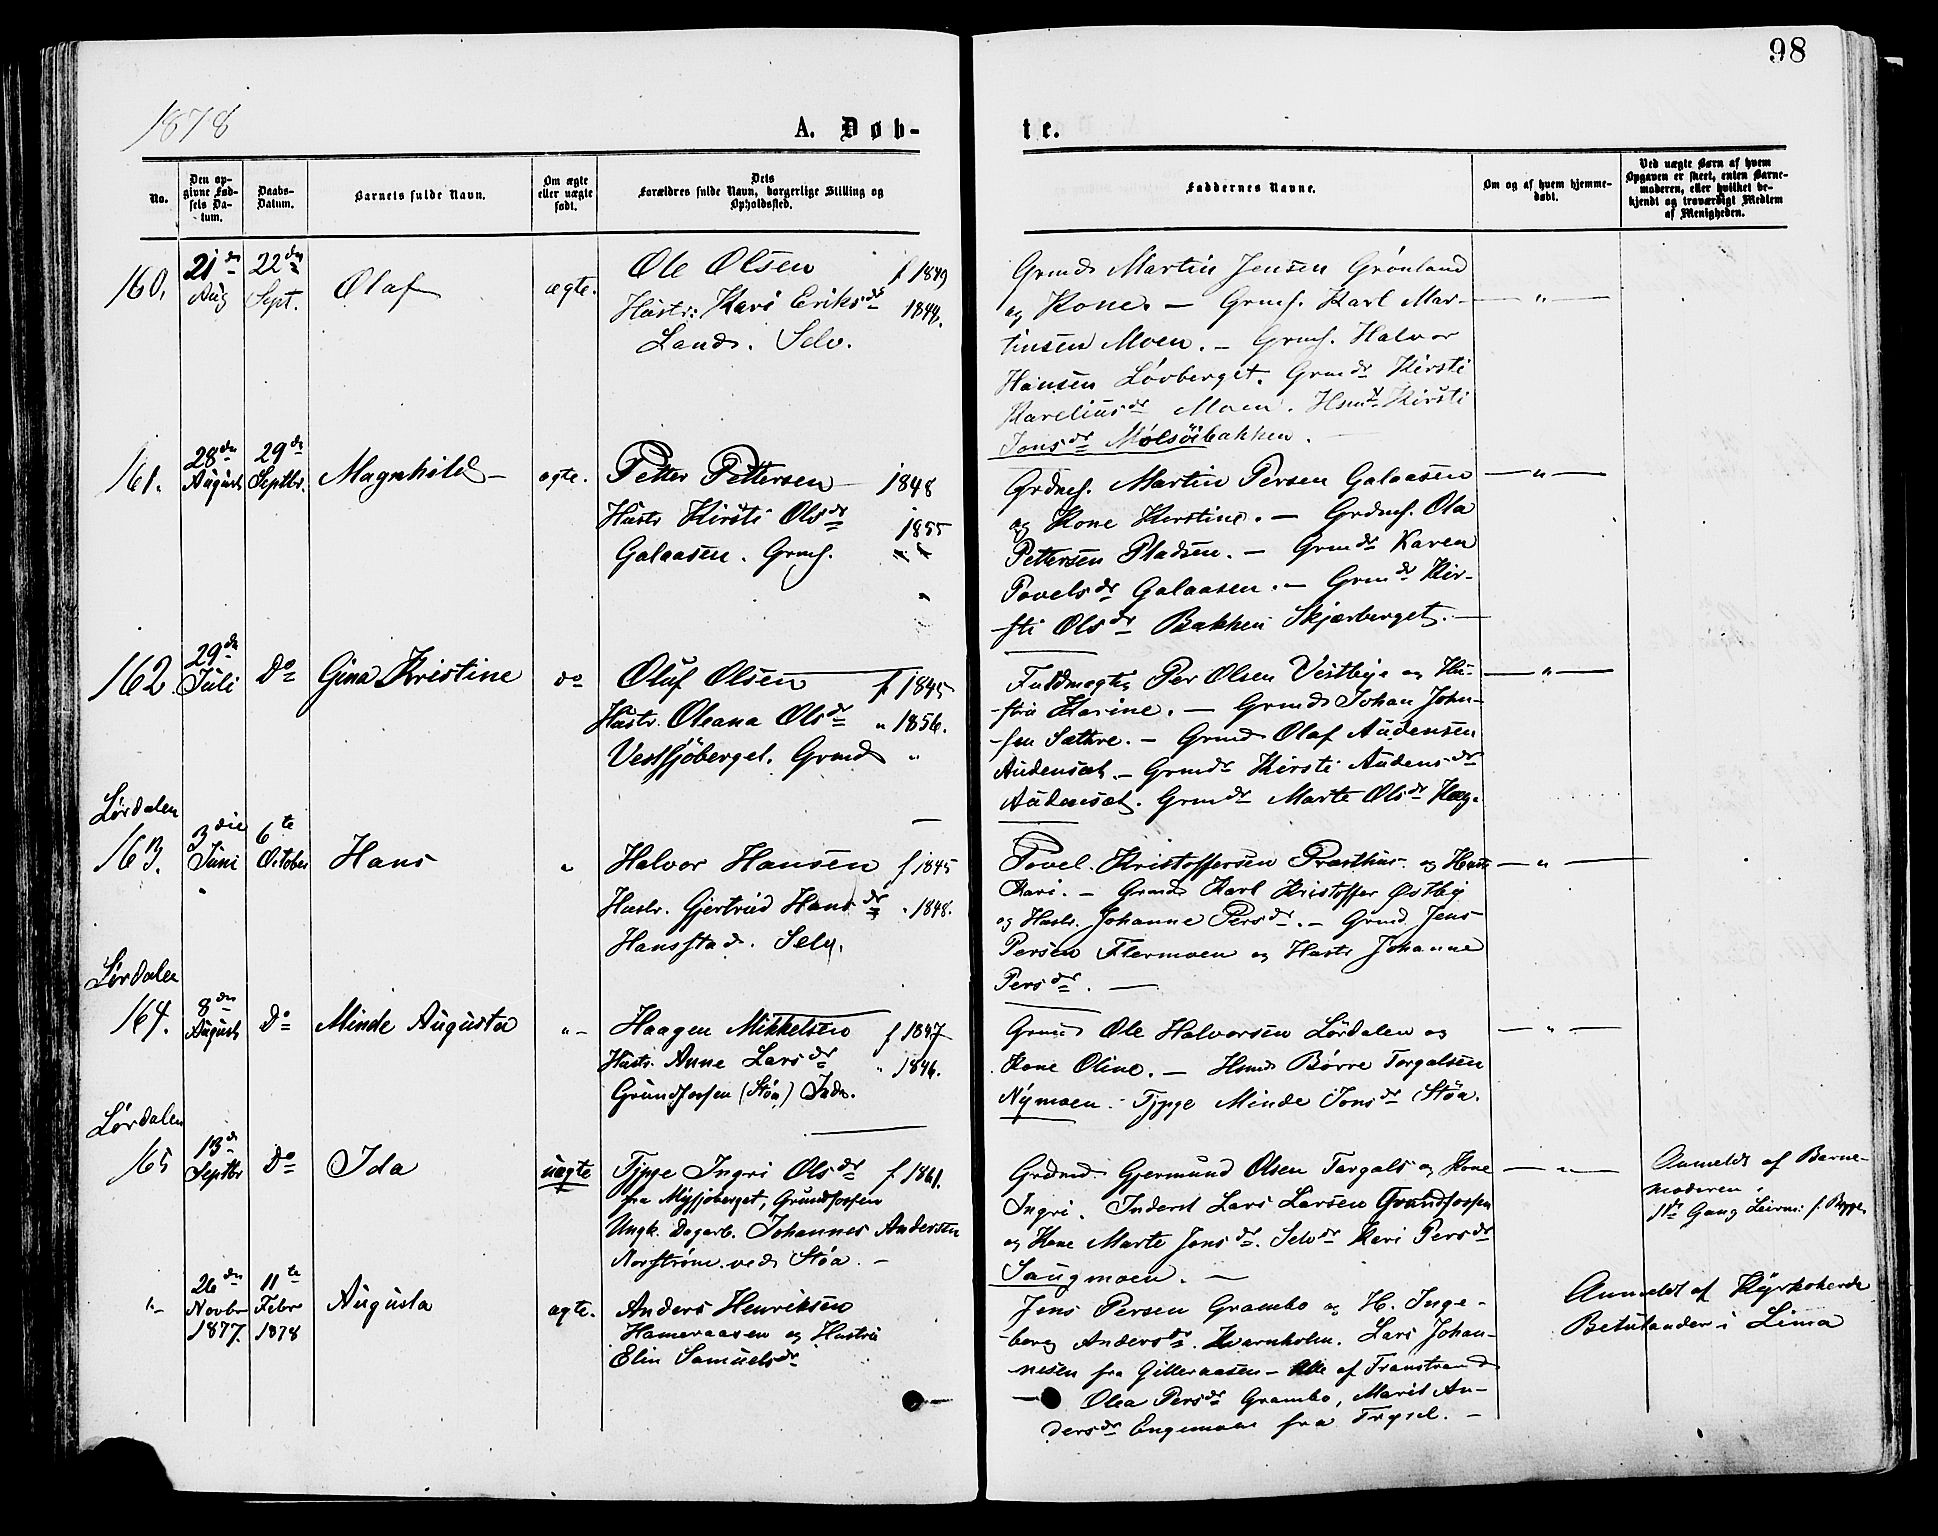 98
1878
A. Døb-
te.
No.
Den op-
givne Fød-
sels Da-
tum.
Daabs-
Datum.
Barnets fulde Navn.
Om ægte
eller uægte
født.
Dets
Forældres fulde Navn, borgerlige Stilling og
Opholdssted.
Faddernes Navne.
Om og af hvem hjemme-
døbt.
Ved uægte Børn af hvem
Opgaven er skeet, enten Barne-
moderen, eller hvilket be-
kjendt og troværdigt Medlem
af Menigheden.
160.
21de
Aug
22de
Sept.
Olaf
ægte.
Ole Olsen f 1849
Hustr: Kari Eriksdr 1848.
Land. Selv.
Grmd Martin Jensen Grønland
og Kone. — Grmf. Karl Mar-
tinsen Moen. — Grmf. Halvor
Hansen Løvberget. Grmdr Kirsti
Kareliusdr Moen. Hsmdr Kirsti
Jonsdr Mølsøibakken.
— " —
161.
28de
August
29de
Septbr.
Magnhild
ægte.
Petter Pettersen 1848
Hustr Kirsti Olsdr 1855
Galaasen. Grmf.
Grdmf. Martin Persen Galaasen
og Kone Kerstine. — Grdmf. Ola
Pettersen Pladsen. — Grmdr Karen
Povelsdr Galaasen. — Grmdr Kir-
sti Olsdr Bakken Skjærberget. —
— " —
162
29de
Juli
Do
Gina Kristine
do
Oluf Olsen f 1845
Hustr. Oleana Olsdr " 1856.
Vestsjøberget. Grmd "
Fuldmægtig Per Olsen Vestby og Hu-
stru Karine. — Grmd Johan John-
sen Sæthre. — Grmd Olaf Audensen
Audensæt. — Grmdr Kirsti Audensdr
Audensæt. Grmdr Marte Olsdr Hag.
— " —
Lørdalen
163.
3die
Juni
6te
October
Hans
"
Halvor Hansen f 1845
Hustr. Gjertrud Hansdr " 1848.
Hansstad. Selv.
Povel Kristoffersen Præsthus og Hust
Kari. — Grmd Karl Kristoffer Østby
og Hustr. Johanne Persdr. — Grmd Jens
Persen Flermoen og Hustr Johanne
Persdr. —
— " —
Lørdalen
164.
8de
August
Do
Minde Augusta
" —
Haagen Mikkelsen f 1847
Hustr. Anne Larsdr " 1846.
Grundforsen (Støa) Inds.
Grmd Ole Halvorsen Lørdalen og
Kone Oline. — Hsmd Børre Torgalsen
Nymoen. Tjpge Minde Jonsdr Støa.
— " —
Lørdalen
165
13de
Septbr
Do
Ida
uægte
Tjpge Ingri Olsdr f 1861.
fra Mysjøberget, Grundforsen
Ungk. Dagarb. Johannes Andersen
Norstrøm ved Støa. —
Grdmd Gjermund Olsen Torgals og Kone
Ingri. Inderst Lars Larsen Grundforsen
og Kone Marte Jonsdr. Selvdr Kari Persdr
Saugmoen. —
— " —
Anmeldt af Barne-
moderen.
" —
26de
Novbr
1877.
11te
Febr
1878
Augusta
ægte.
Anders Henriksen
Hameraasen og Hustru
Elin Samuelsdr
Jens Persen Grambo og H. Inge-
borg Andersdr. Kvarnholm. Lars Johan-
nesen fra Gilleraasen — Alle af Transtrand
— Olea Persdr Grambo, Marit An-
dersdr Engemoen fra Trysil. —
Anmeldt af Kyrkoherde
Betulander i Lima